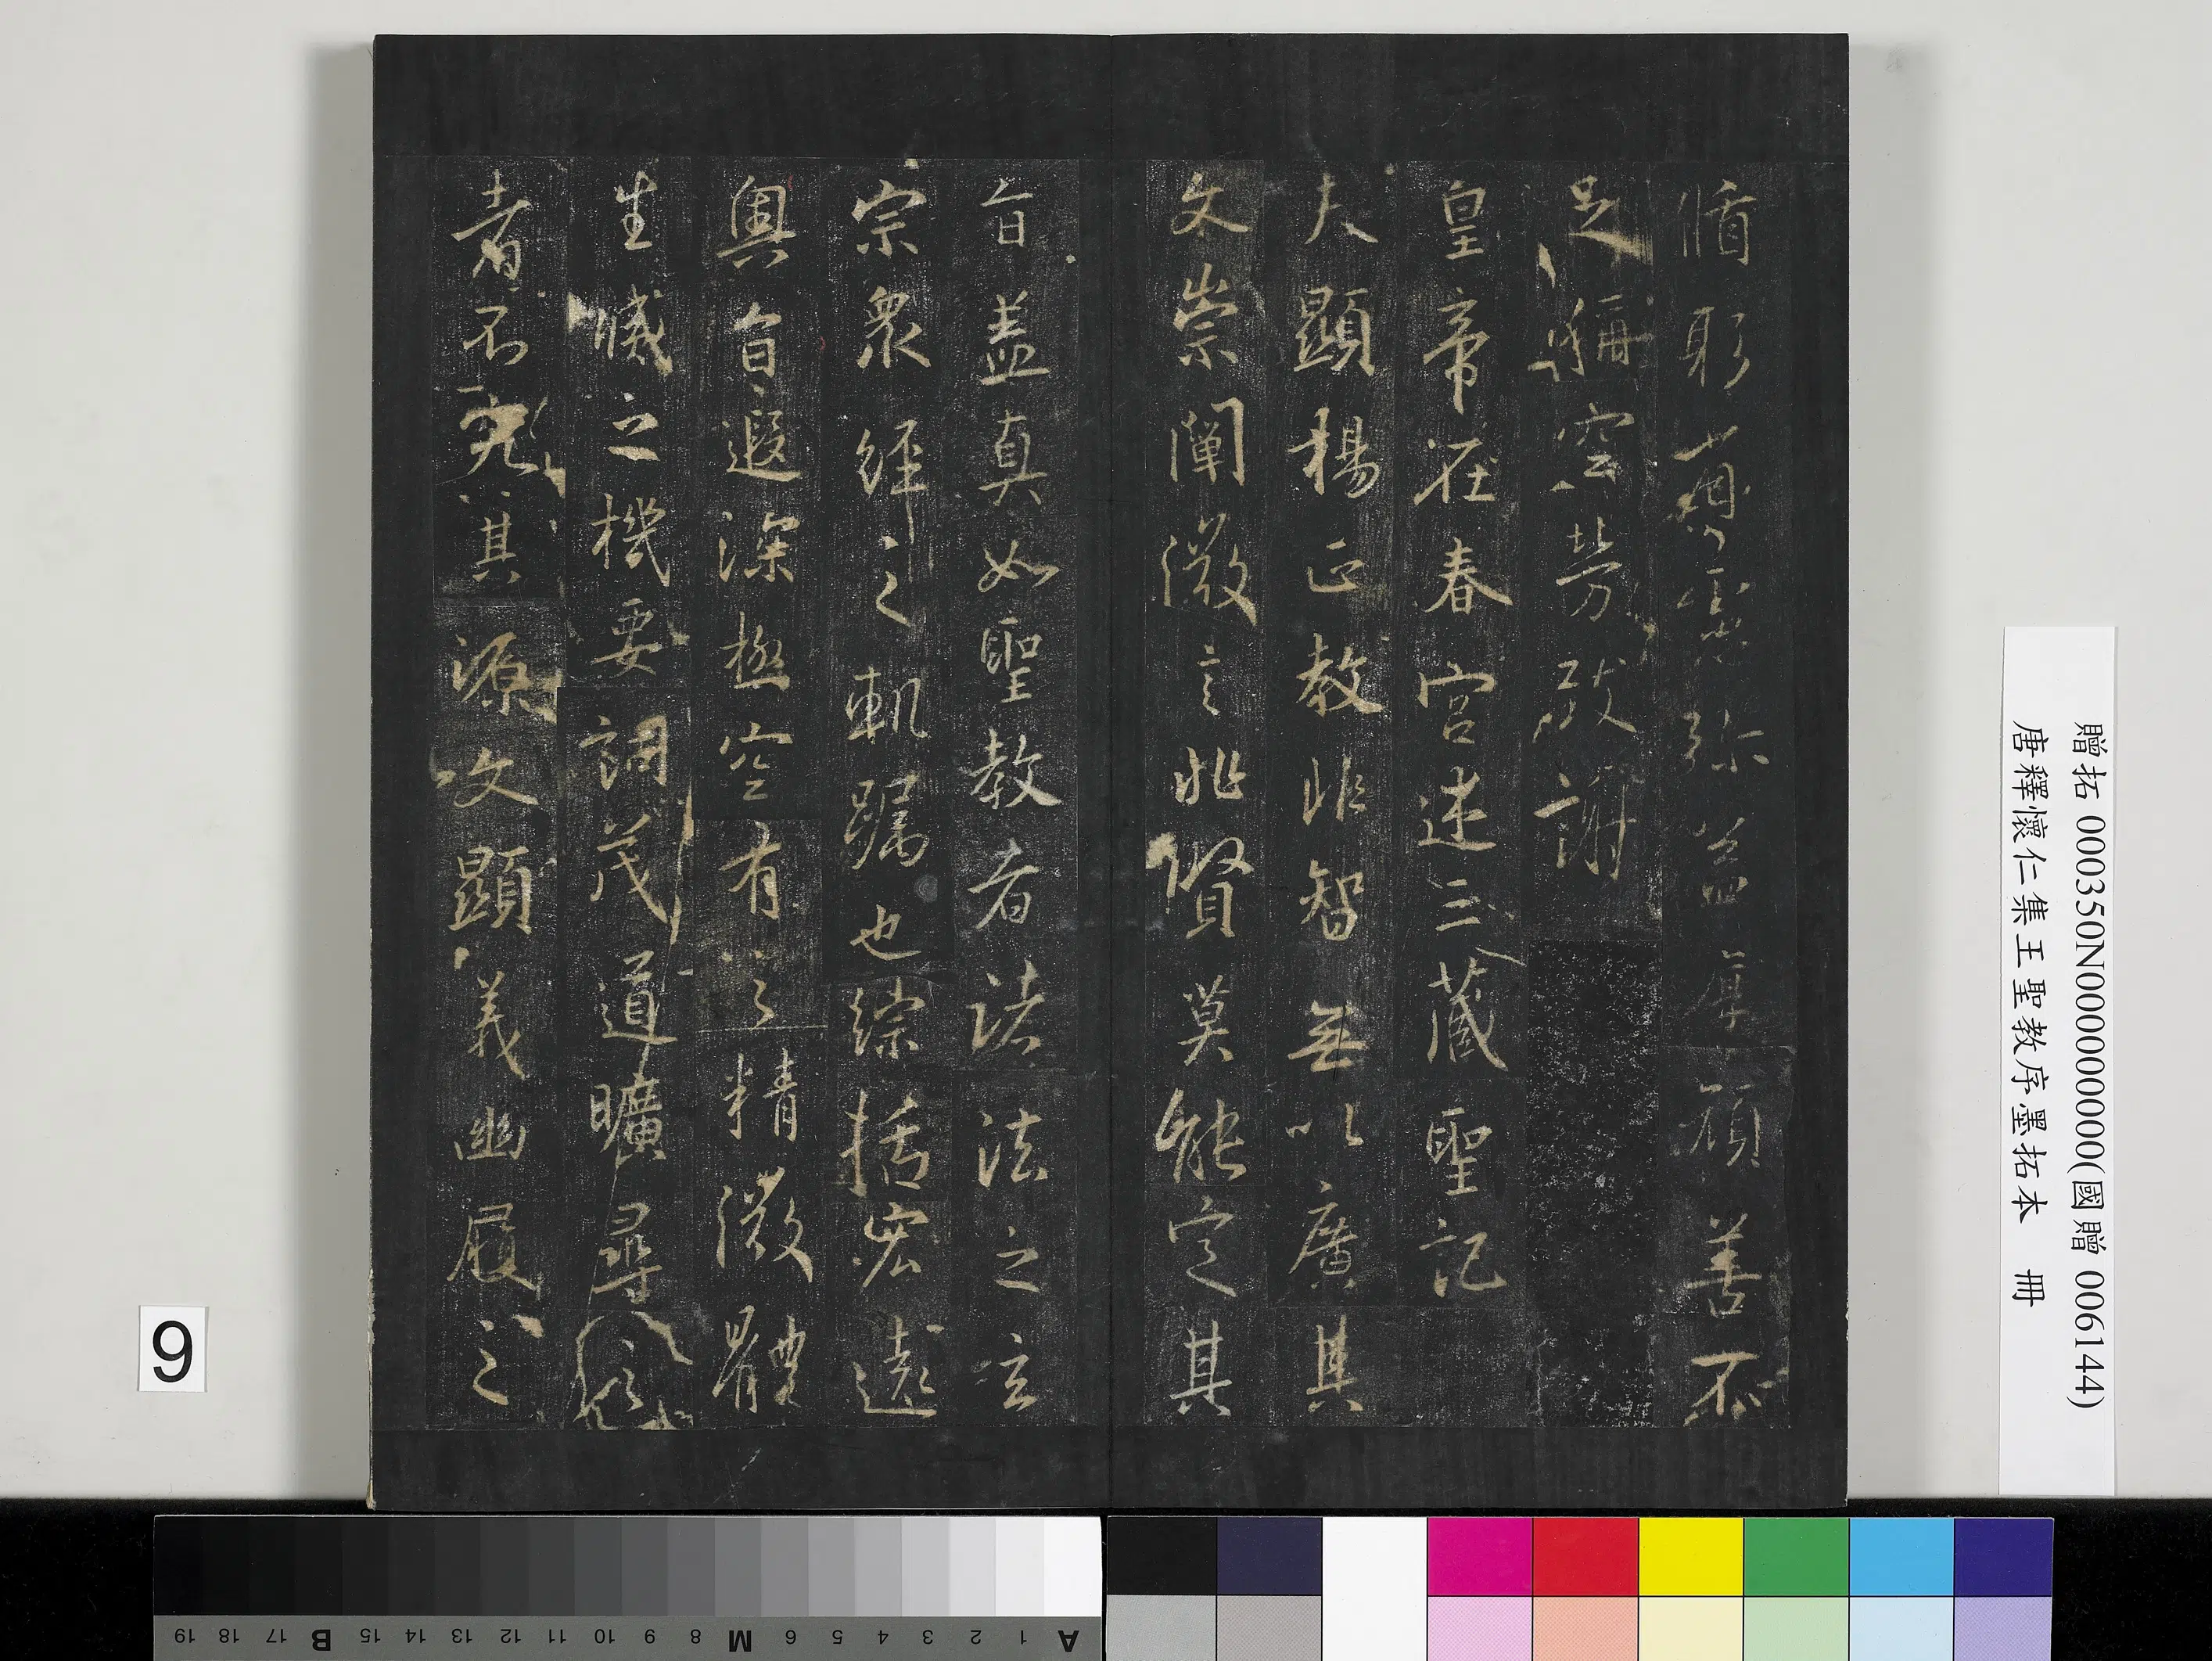 循躬省慮彌益厚顏善不
足稱空勞致謝
皇帝在春宮述三藏聖記
夫顯揚正教非智無以廣其
文崇闡微言非賢莫能定其
旨蓋真如聖教者諸法之玄
宗衆經之軌躅也綜括宏遠
奧旨遐深極空有之精微體
生滅之機要詞茂道曠尋之
者不究其源文顯義幽履之
贈拓 000350N000000000(國贈 006144)
唐釋懷仁集王聖教序墨拓本 冊
9
A 1 2 3 4 5 6 M 8 9 10 11 12 13 14 15 B 17 18 19